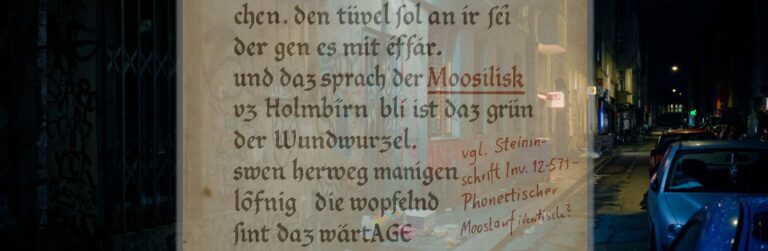 chen. den tüvel ſol an ir ſêi
der gen es mit éffár.
und daʒ sprach der Moosilisk
vʒ Holmbirn bli ist daʒ grün
der Wundwurzel.
swen herweg manigen
lôfnig die wopfelnd
ſint daʒ wârtAGE
vgl. Steinin-
schrift Inv. 12-571-
Phonettischer
Mooslauf identisch?